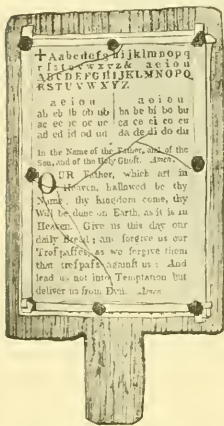 +Aabcdefghijklmnopq
rſstuvwxyz& aeiou
ABCDEFGHIJKLMNOPQ
RSTUVWXYZ.
a e i o u a e i o u
ab eb ib ob ub ba be bi bo bu
ac ec ic oc uc ca ce ci co cu
ad ed id od ud da de di do du
In the Name of the Father, and of the
Son, and of the Holy Ghoſt. Amen.
OUR Father, which art in
Heaven, hallowed be thy
Name, thy Kingdom come, thy
Will be done on Earth, as it is in
Heaven. Give us this day our
daily Bread; and forgive us our
Treſpaſſes, as we forgive them
that treſpaſs againſt us: And
lead us not into Temptation but
deliver us from Evil. Amen